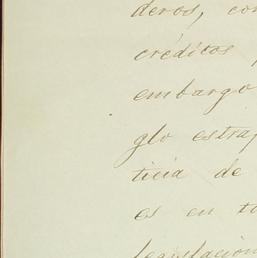 deros, con
créditos,
embargo
glo estra
ticia de
es en to
legislacion